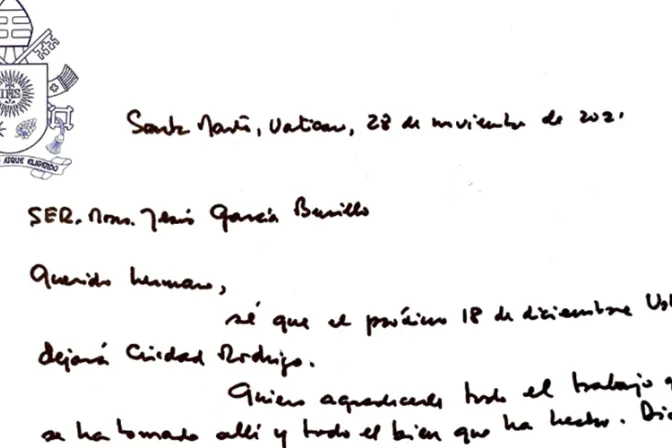 IHS
ATQUE ELIGENDO
Santa Marta, Vaticano, 28 de noviembre de 2021
SER. Mons. Jesús García Burillo
Querido hermano,
sé que el próximo 18 de diciembre
dejará Ciudad Rodrigo.
Quiero agradecerle todo el trabajo
se ha tomado allí y todo el bien que ha hecho.